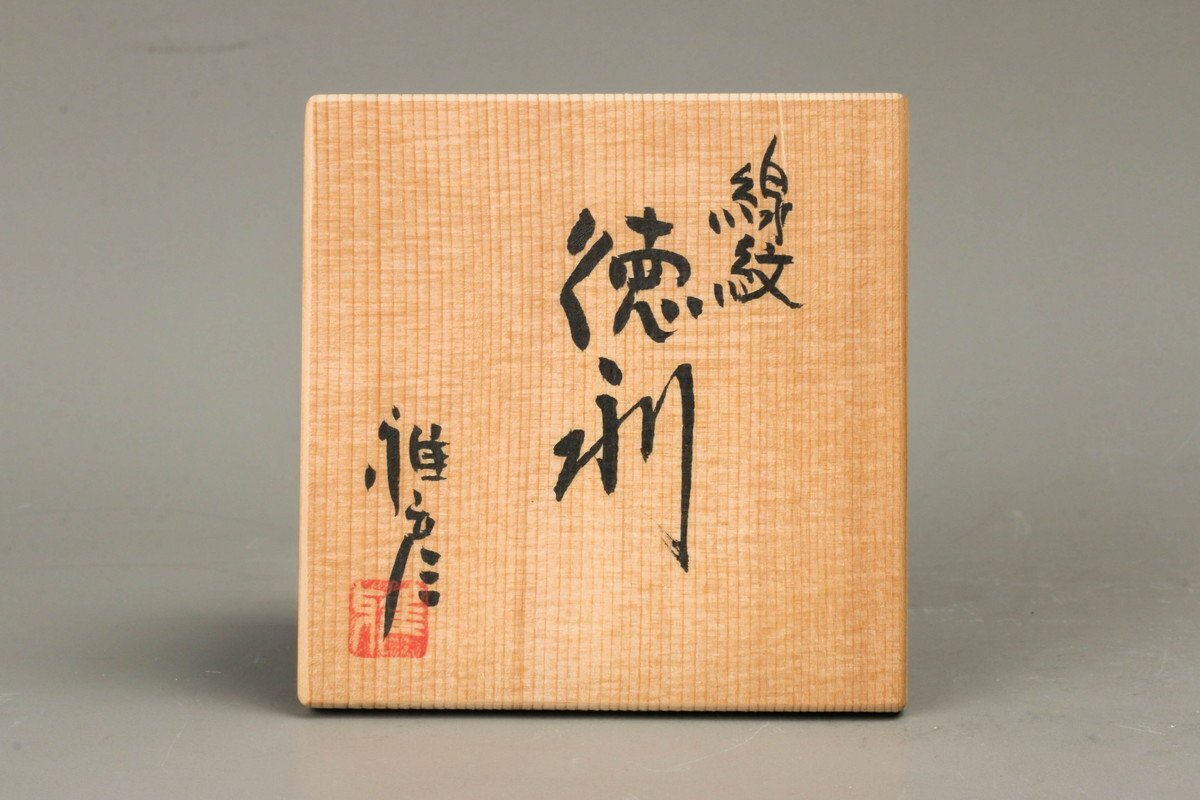 線紋
徳利
雅彦